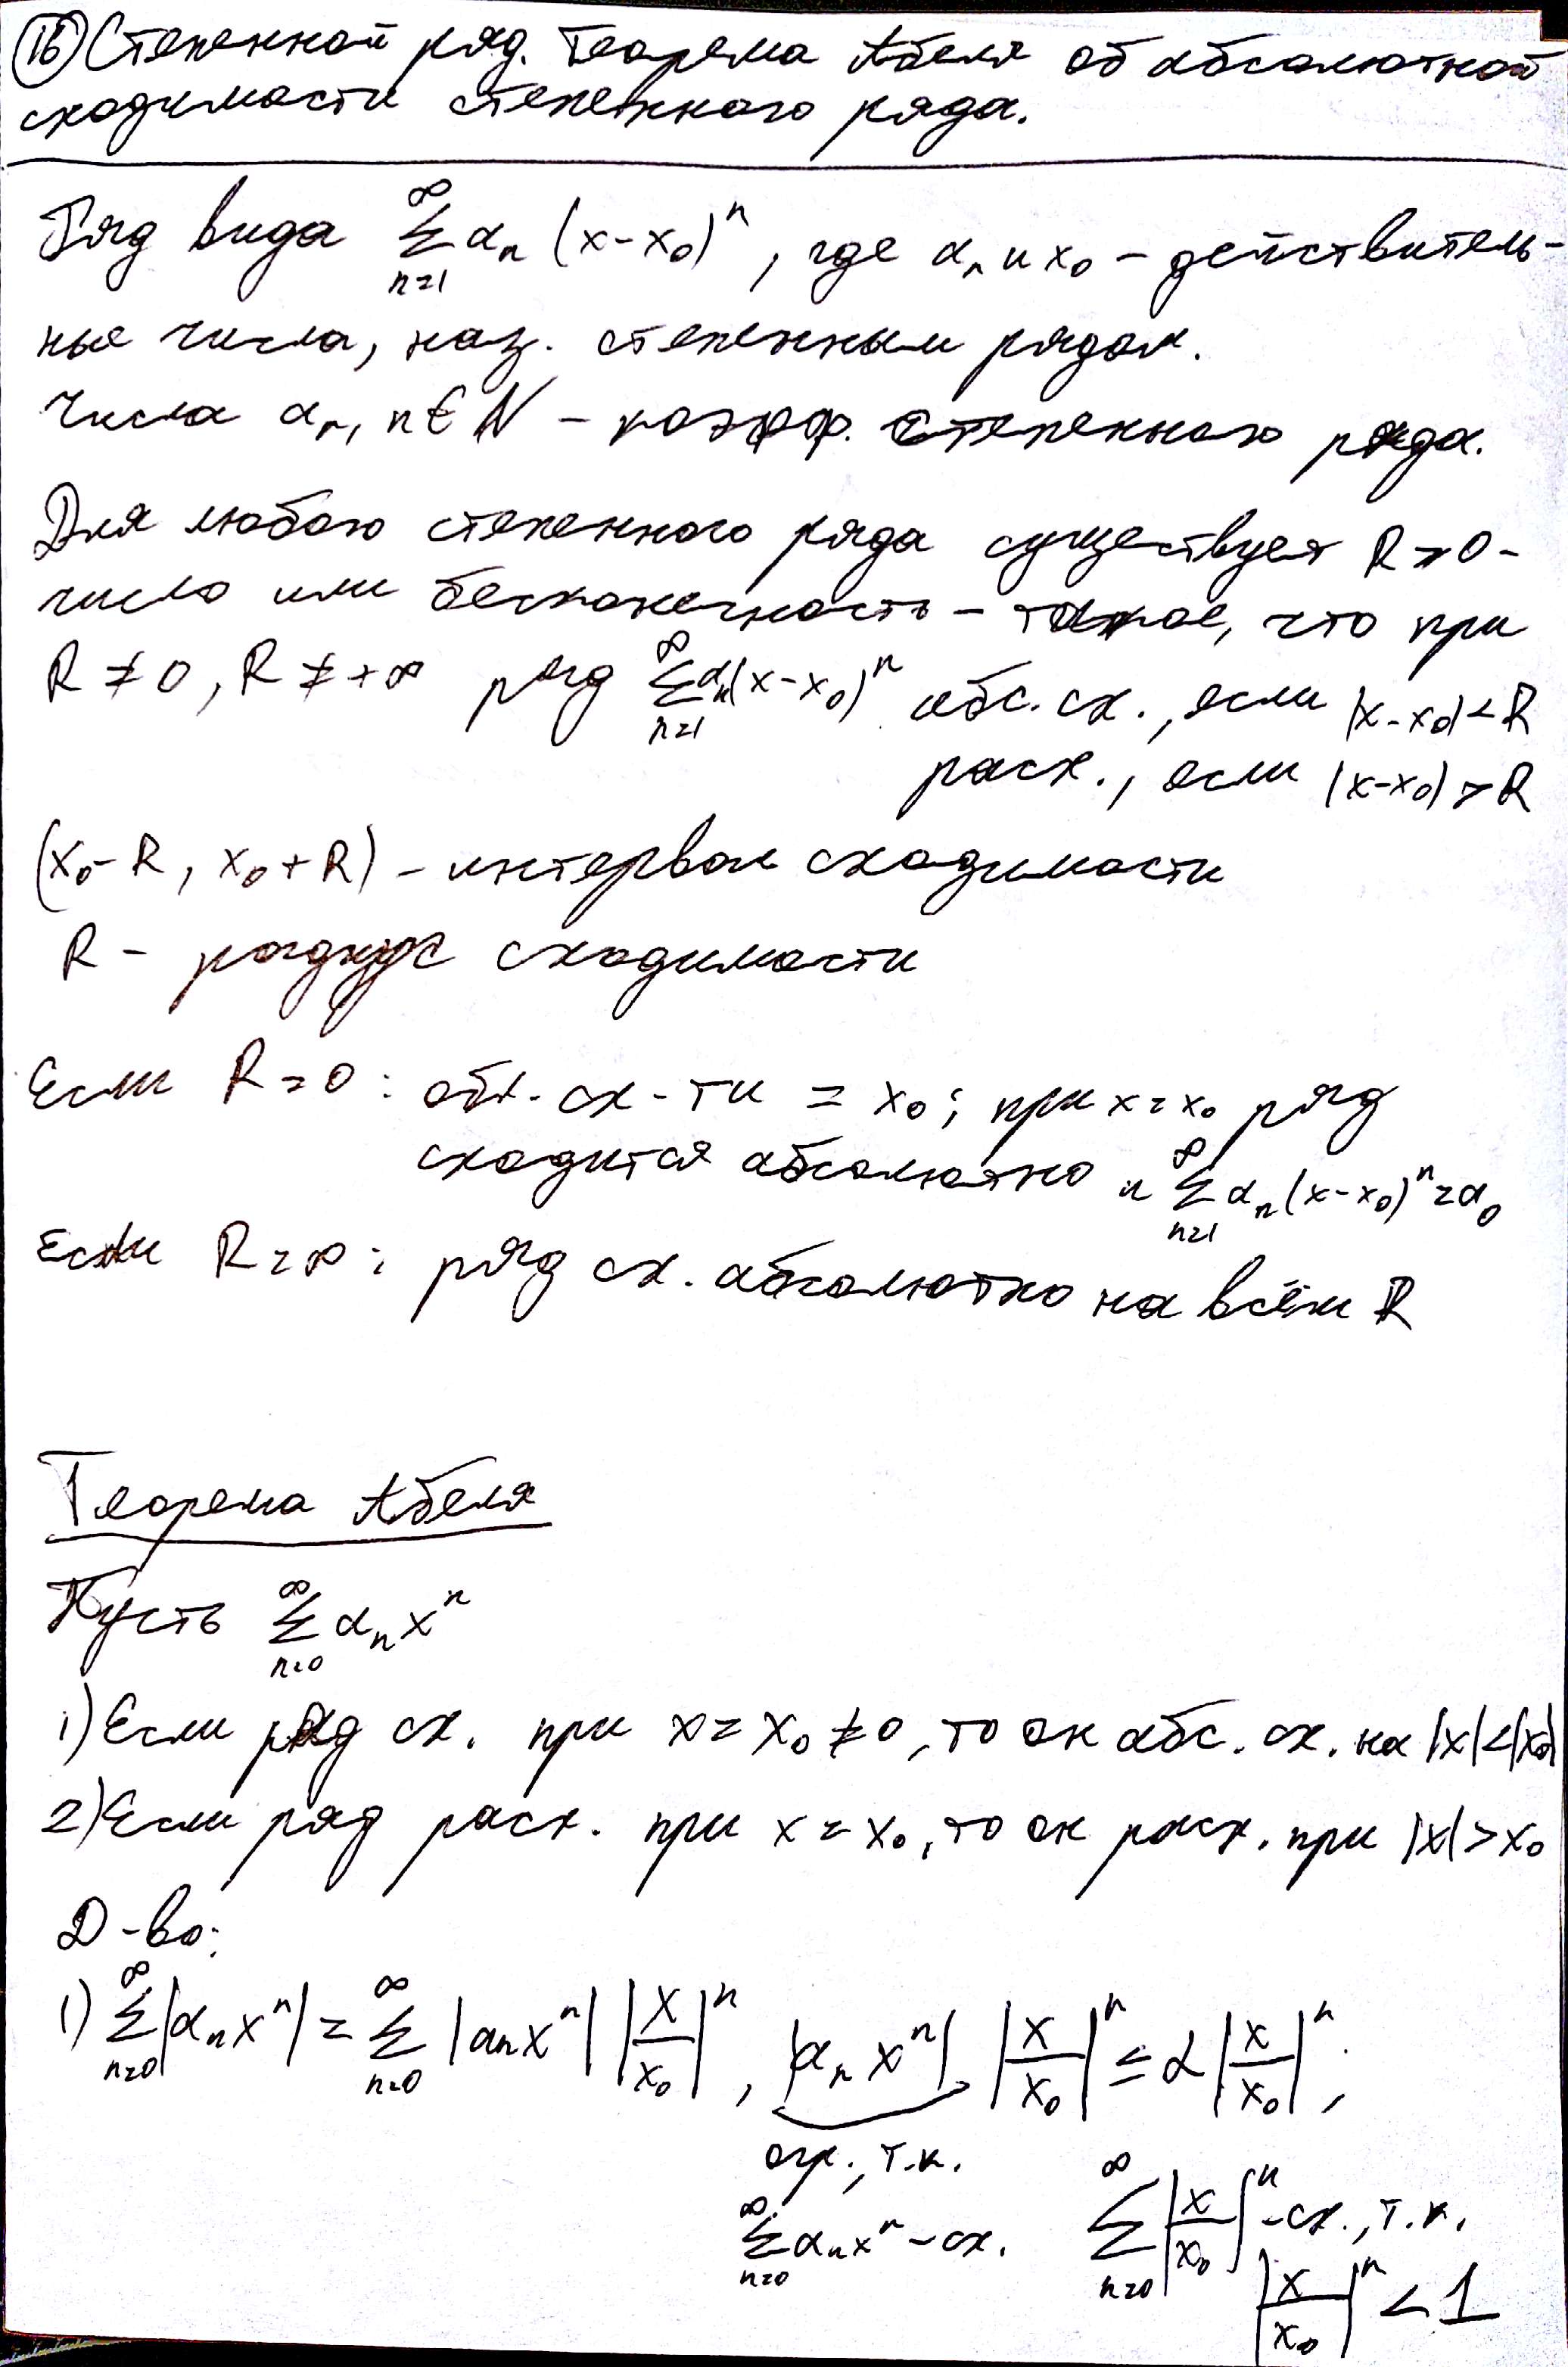 16) Степенной ряд. Теорема Абеля об абсолютной
сходимости степенного ряда.
Ряд вида ∑_{n=1}^{∞} α_n (x-x₀)ⁿ, где α_n и x₀ - действитель-
ные числа, наз. степенным рядом.
Числа α_n, n∈N - коэфф. степенного ряда.
Для любого степенного ряда существует R≥0 -
число или бесконечность - такое, что при
R≠0, R≠+∞ ряд ∑_{n=1}^{∞} α_n(x-x₀)ⁿ абс. сх., если |x-x₀|<R
расх., если |x-x₀|>R
(x₀-R, x₀+R) - интервал сходимости
R - радиус сходимости
Если R=0: обл. сх-ти = x₀; при x=x₀ ряд
сходится абсолютно и ∑_{n=1}^{∞} α_n(x-x₀)ⁿ=α₀
Если R=∞: ряд сх. абсолютно на всём R
Теорема Абеля
Пусть ∑_{n=0}^{∞} α_n xⁿ
1) Если ряд сх. при x=x₀≠0, то он абс. сх. на |x|<|x₀|
2) Если ряд расх. при x=x₀, то он расх. при |x|>x₀
Д-во:
1) ∑_{n=0}^{∞} |α_n xⁿ| = ∑_{n=0}^{∞} |a_n xⁿ| |x/x₀|ⁿ, |α_n xⁿ| |x/x₀|ⁿ ≤ α |x/x₀|ⁿ,
огр., т.к.
∑_{n=0}^{∞} α_n xⁿ - сх. ∑_{n=0}^{∞} |x/x₀|ⁿ - сх., т.к.
|x/x₀|ⁿ < 1